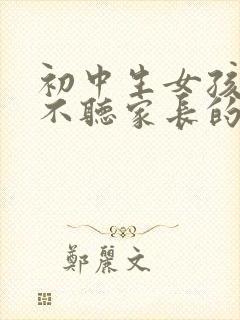 初中生女孩
不聽家長的
鄭麗文